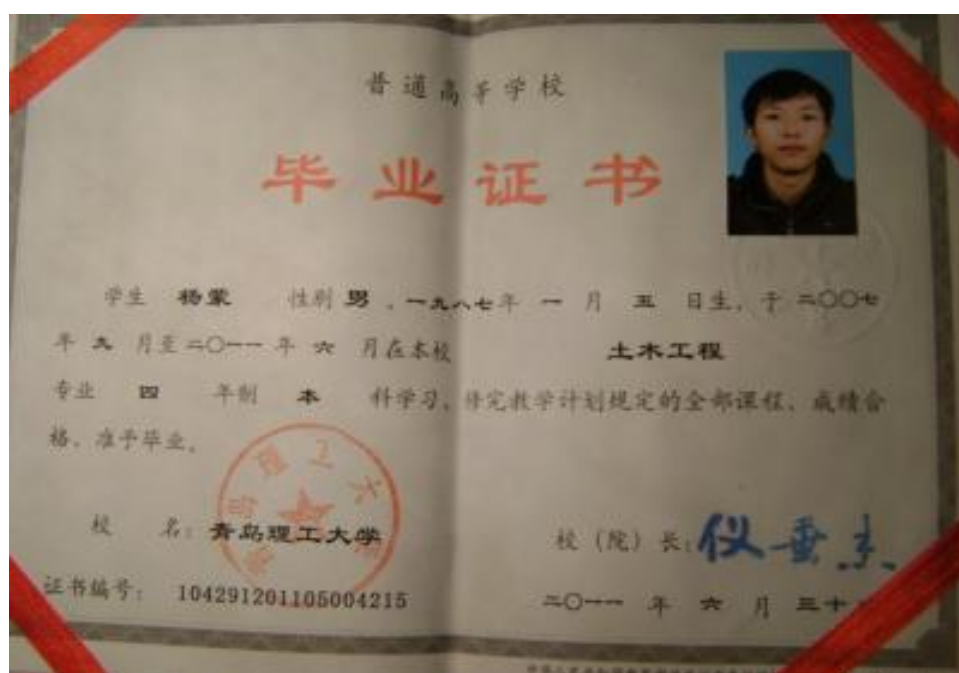 普通高等学校
毕业证书
学生 杨蒙 性别 男 ，一九八七年 一 月 五 日生，于 二〇〇七
年 九 月至二〇一一 年 六 月在本校 土木工程
专业 四 年制 本 科学习，修完教学计划规定的全部课程，成绩合
格，准予毕业。
校 名：青岛理工大学
校（院）长：仪垂杰
证书编号：104291201105004215
二〇一一 年 六 月 三十